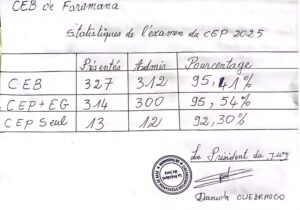 CEB de Faramana
Statistiques de l'examen du CEP 2025
Présentés Admis Pourcentage
CEB 327 312 95,41%
CEP+EG 314 300 95,54%
CEP Seul 13 12 92,30%
Le Président du jury
OUEDRAOGO